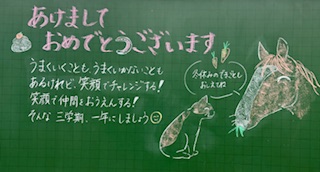 あけまして
おめでとうございます
うまくいくことも、うまくいかないことも
あるけれど、笑顔でチャレンジする!
笑顔で仲間をおうえんする!
そんな 三学期、一年にしましょう
冬休みのできごと
おしえてね